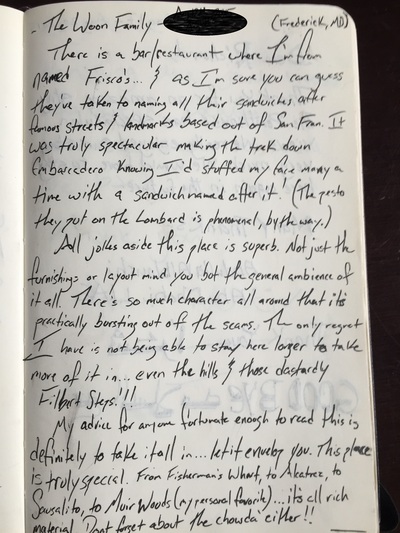 - The Woon Family - (Frederick, MD)
There is a bar/restaurant where I'm from
named Frisco's... & as I'm sure you can guess
they've taken to naming all their sandwiches after
famous streets & landmarks based out of San Fran. It
was truly spectacular making the trek down
Embarcadero knowing I'd stuffed my face many a
time with a sandwich named after it! (The pesto
they put on the Lombard is phenomenal, by the way.)
All jokes aside this place is superb. Not just the
furnishings or layout mind you but the general ambience of
it all. There's so much character all around that its
practically bursting out of the seams. The only regret
I have is not being able to stay here longer to take
more of it in... even the hills & those dastardly
Filbert Steps!!!
My advice for anyone fortunate enough to read this is
definitely to take it all in... let it envelop you. This place
is truly special. From Fisherman's Wharf, to Alcatraz, to
Sausalito, to Muir Woods (my personal favorite)... it's all rich
material. Dont forget about the chowda' either!!